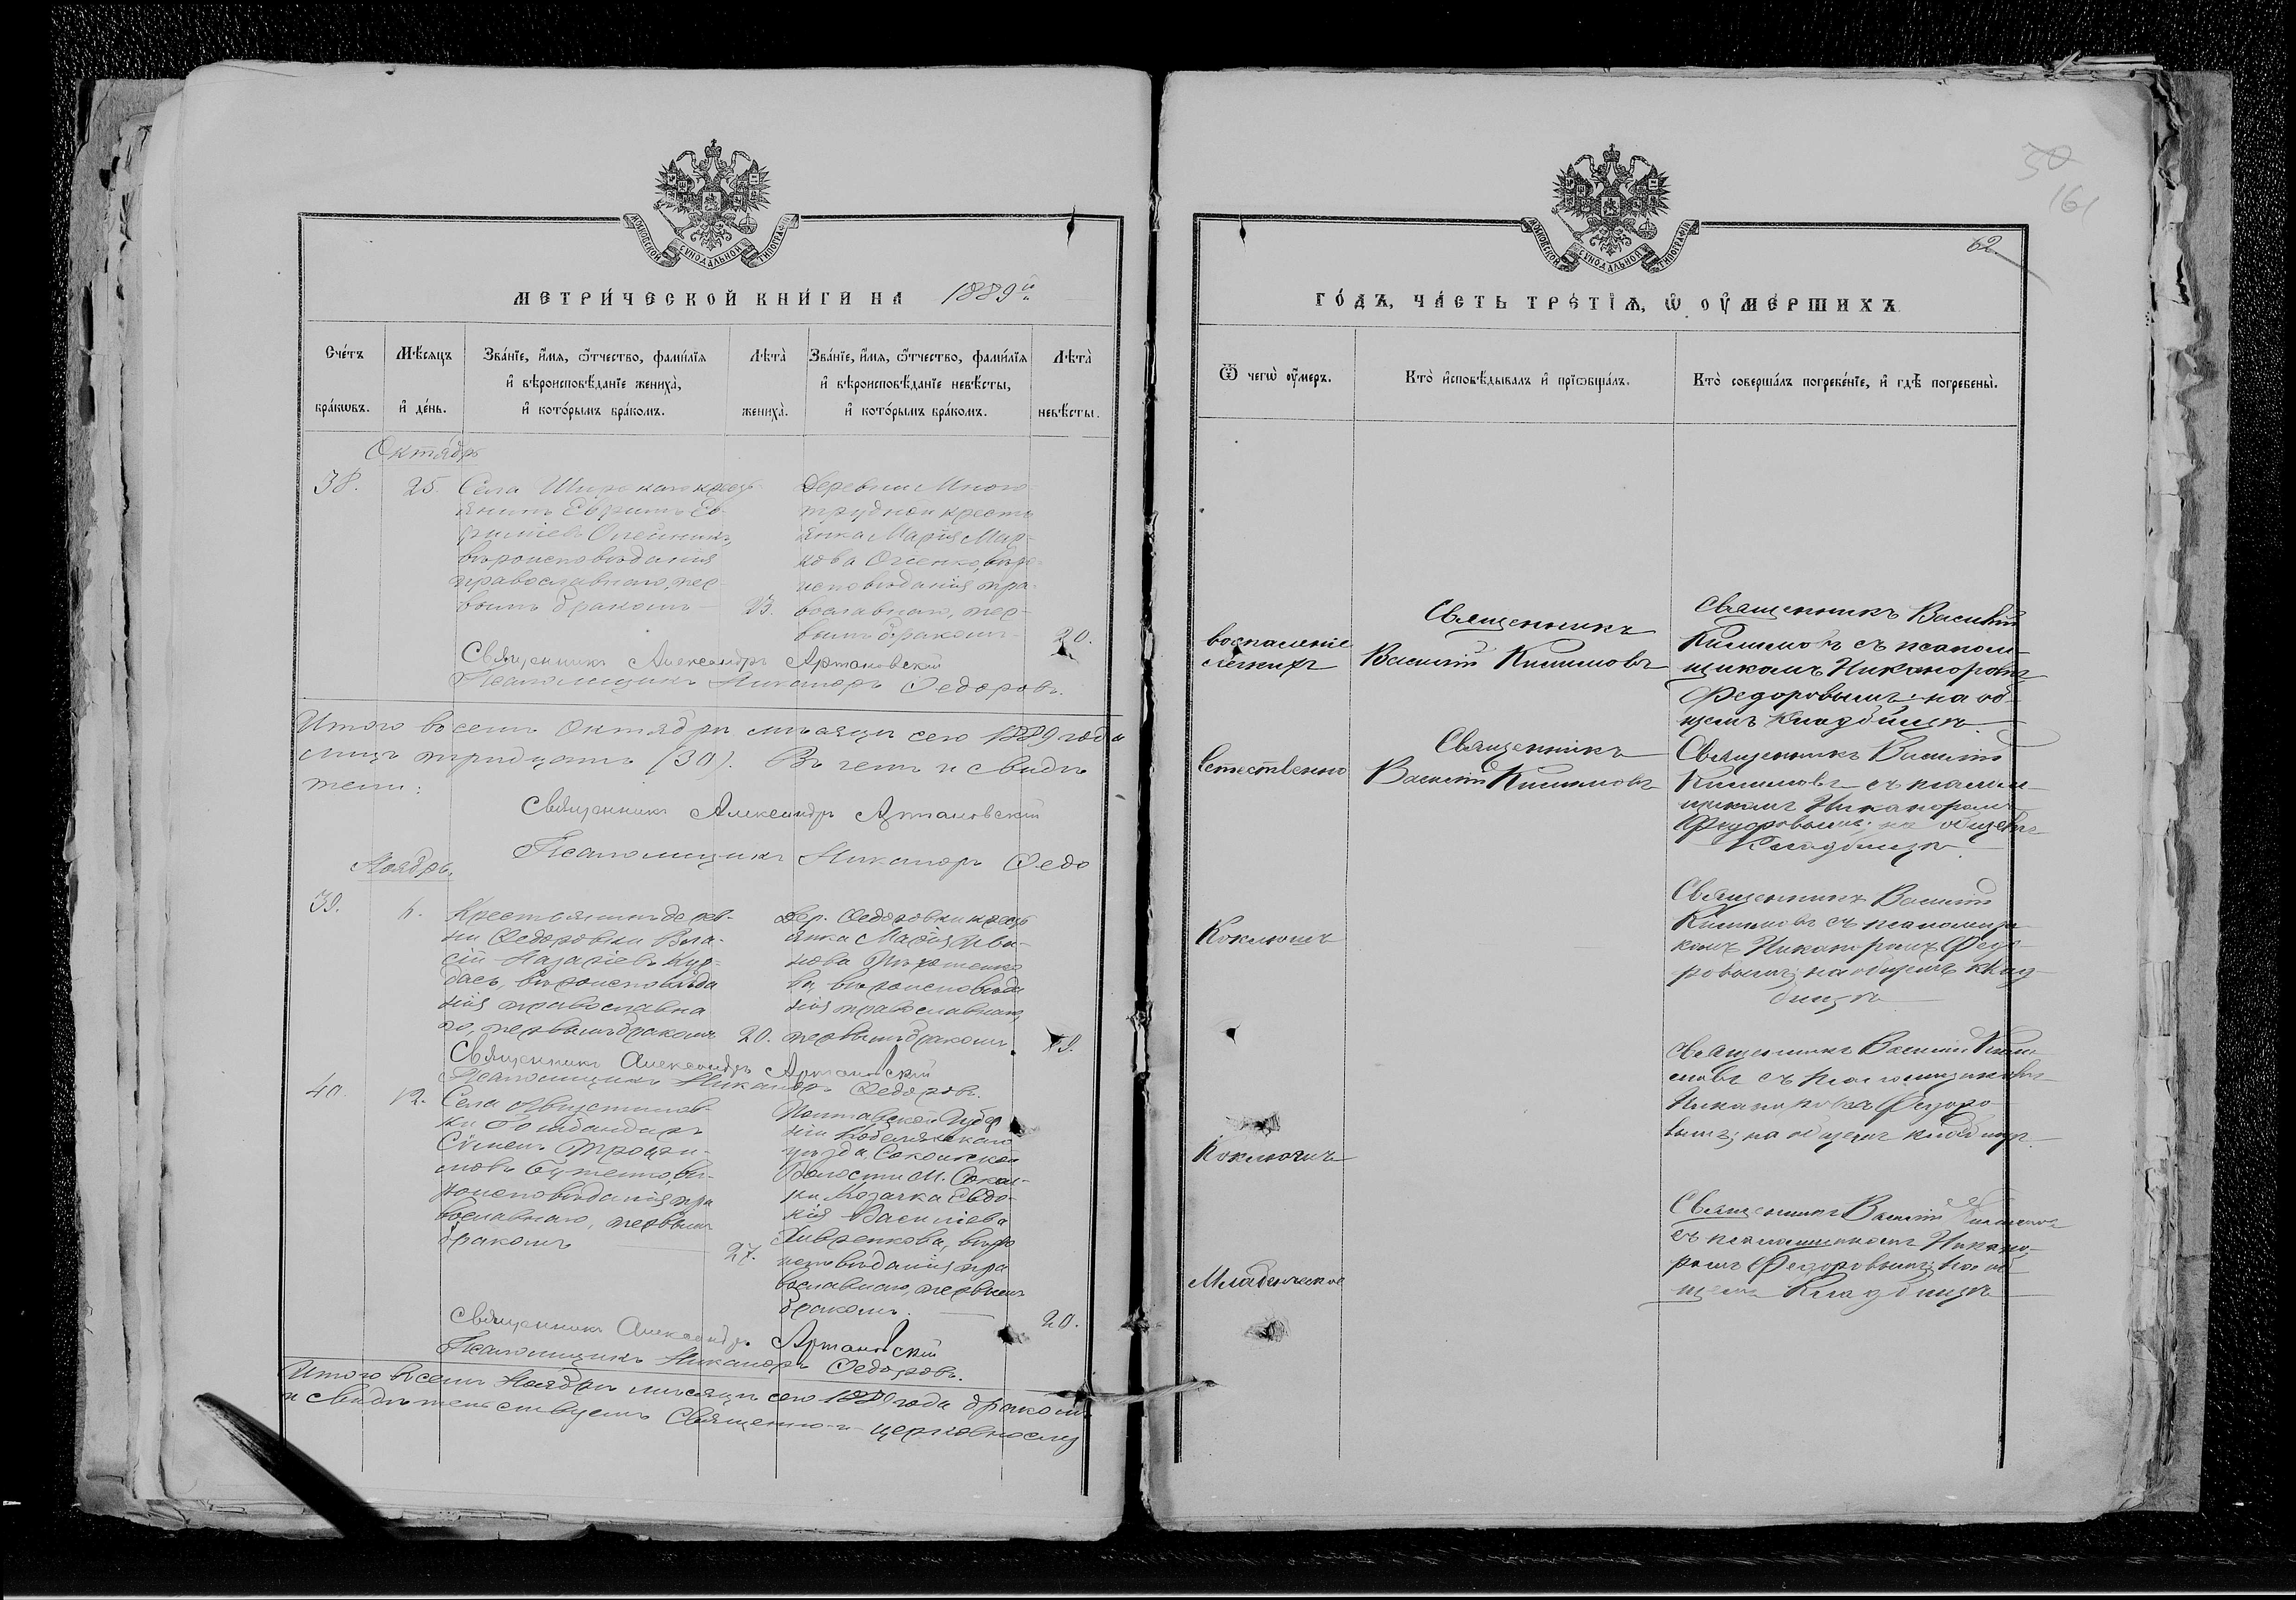 МОСКОВСКОЙ СѴНОДАЛЬНОЙ ТИПОГРАФІИ
МЕТРИ́ЧЕСКОЙ КНИ́ГИ НА 1889й
Сче́тъ бра́ковъ.
Мѣ́сяцъ и҆ де́нь.
Зва́нїе, и҆́мя, ѻ҆́тчество, фами́лїя и҆ вѣроисповѣ́данїе жениха̀, и҆ кото́рымъ бра́комъ.
Лѣта̀ жениха̀.
Зва́нїе, и҆́мя, ѻ҆́тчество, фами́лїя и҆ вѣроисповѣ́данїе невѣ́сты, и҆ кото́рымъ бра́комъ.
Лѣта̀ невѣ́сты.
Октябрь
38.
25.
Села крестьянинъ
вѣроисповѣданія
православнаго, пер-
вымъ бракомъ
23.
Деревни Много-
трудной кресть
янка Марія Мар-
кова вѣро-
исповѣданія пра-
вославнаго, пер-
вымъ бракомъ
20.
Священникъ Александръ Артановскій
Псаломщикъ Никаноръ Федоровъ.
Итого всемъ Октябрѣ мѣсяцѣ сего 1889 года
лицъ тридцать (30). Въ чемъ и свидѣ
тели:
Священникъ Александръ Артановскій
Псаломщикъ Никаноръ Федо
Ноябрь.
39.
6.
Крестьянинъ дерев-
ни Федоровки Вла-
сій Назаріевъ Кур-
дась, вѣроисповѣда
нія православна
го, первымъ бракомъ
20.
Дер. Федоровки кресть
янка Марія Ива-
нова
вѣроисповѣда
нія православнаго,
первымъ бракомъ.
19.
Священникъ Александръ Артановскій
Псаломщикъ Никаноръ Федоровъ.
40.
12.
Села Августинов-
ки
Сѵмеонъ Трофи-
мовъ вѣ-
роисповѣданія пра
вославнаго, первымъ
бракомъ
27.
Полтавской губер
ніи Кобелякскаго
уѣзда, Сокольской
Волости М. Сокол-
ки Козачка Евдо-
кія Василіева
вѣро
исповѣданія пра
вославнаго, первымъ
бракомъ.
20.
Священникъ Александръ Артановскій
Псаломщикъ Никаноръ Федоровъ.
Итого всемъ Ноябрѣ мѣсяцѣ сего 1889 года браковъ
и свидѣтельствуемъ Священно-и-церковнослу
50
161
62
МОСКОВСКОЙ СѴНОДАЛЬНОЙ ТИПОГРАФІИ
ГО́ДЪ, ЧА́СТЬ ТРЕ́ТЇѦ, Ѡ҆ ОУ҆МЕ́РШИХЪ
Ѿ чегѡ̀ оу҆́меръ.
Кто̀ и҆сповѣ́дывалъ и҆ прїѡбща́лъ.
Кто̀ соверша́лъ погребе́нїе, и҆ гдѣ̀ погребены̀.
воспаленіе
легкихъ
Священникъ
Василій
Священникъ Василій
съ псалом-
щикомъ Никаноромъ
Федоровымъ; на об-
щемъ кладбищѣ
Естественно
Священникъ
Василій
Священникъ Василій
съ псалом-
щикомъ Никаноромъ
Федоровымъ; на общемъ
Кладбищѣ
Коклюшъ
Священникъ Василій
съ псаломщи-
комъ Никаноромъ Федо-
ровымъ; на общемъ клад-
бищѣ
Коклюшъ
Священникъ Василій
съ псаломщикомъ
Никаноромъ Федоро-
вымъ; на общемъ кладбищѣ.
Младенческое
Священникъ Василій
съ псаломщикомъ Никано-
ромъ Федоровымъ; на об-
щемъ Кладбищѣ